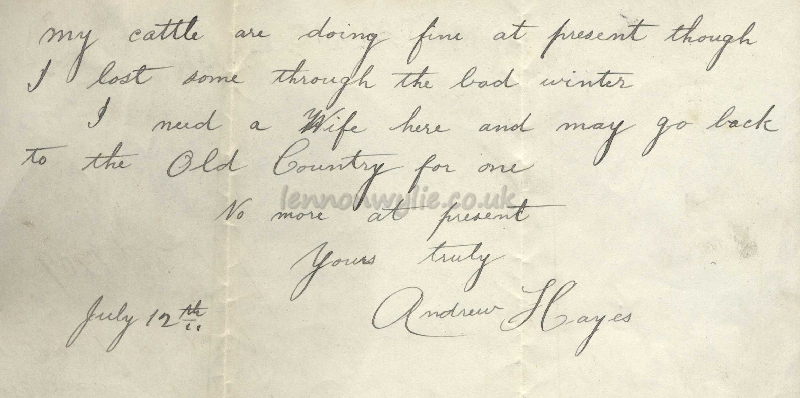 my cattle are doing fine at present though
I lost some through the bad winter
I need a Wife here and may go back
to the Old Country for one
lennonwylie.co.uk
No more at present
Yours truly
July 12th
Andrew Hayes